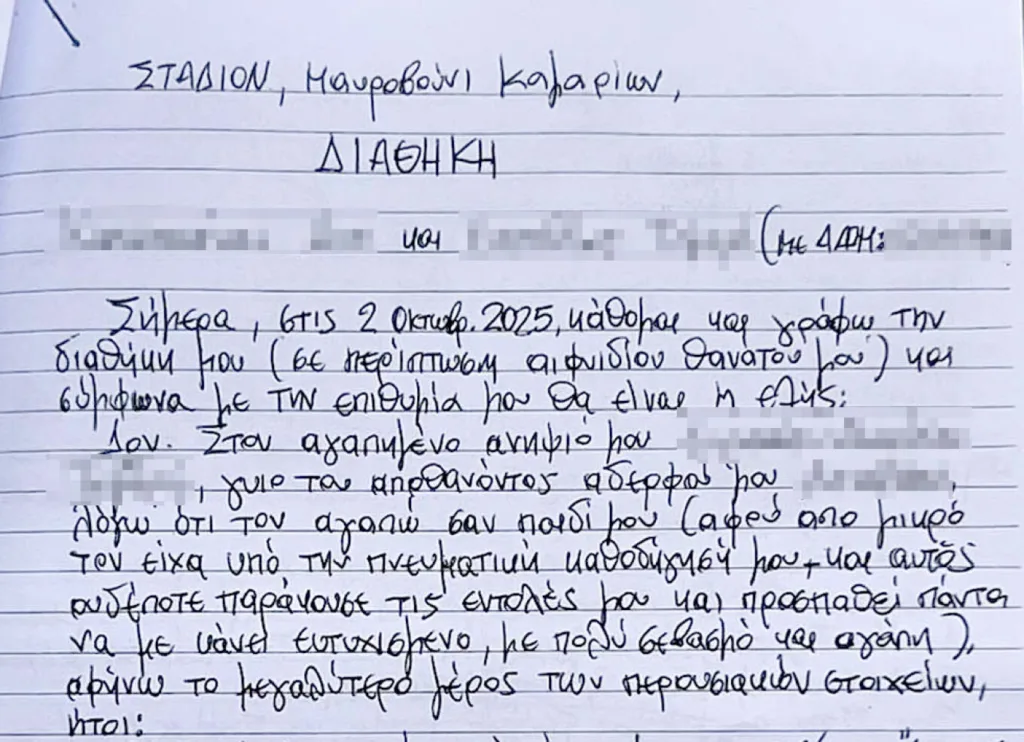 ΣΤΑΔΙΟΝ, Μαυροβούνι Καμαρίων,
ΔΙΑΘΗΚΗ
και (με ΑΔΦΗ:
Σήμερα, στις 2 Οκτωβρ. 2025, κάθομαι και γράφω την
διαθήκη μου (σε περίπτωση αιφνιδίου θανάτου μου) και
σύμφωνα με την επιθυμία μου θα είναι η εξής:
1ον. Στον αγαπημένο ανηψιό μου
, γυιο του αποθανόντος αδερφού μου
λόγω ότι τον αγαπώ σαν παιδί μου (αφού απο μικρό
τον είχα υπό την πνευματική καθοδήγησή μου, και αυτός
ουδέποτε παράκουσε τις εντολές μου και προσπαθεί πάντα
να με κάνει ευτυχισμένο, με πολύ σεβασμό και αγάπη),
αφήνω το μεγαλύτερο μέρος των περουσιακών στοιχείων,
ήτοι: